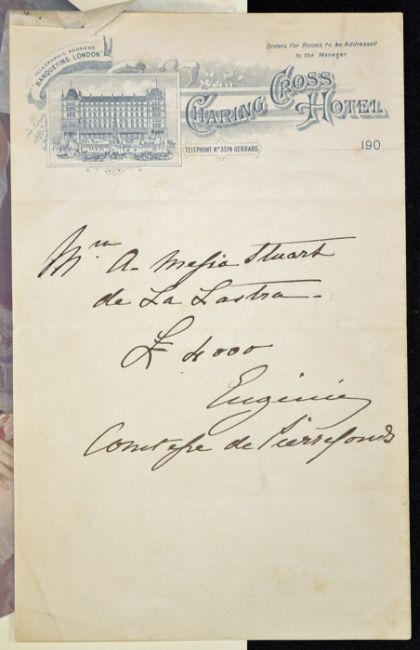 Orders for Rooms to be Addressed
to the Manager.
TELEGRAPHIC ADDRESS
BANQUETING, LONDON
CHARING CROSS
HOTEL
TELEPHONE Nº 3574 GERRARD.
190
A. Mesia Stuart
de La Lastra.
£ 4000
Eugénie
Comtesse de Pierrefonds